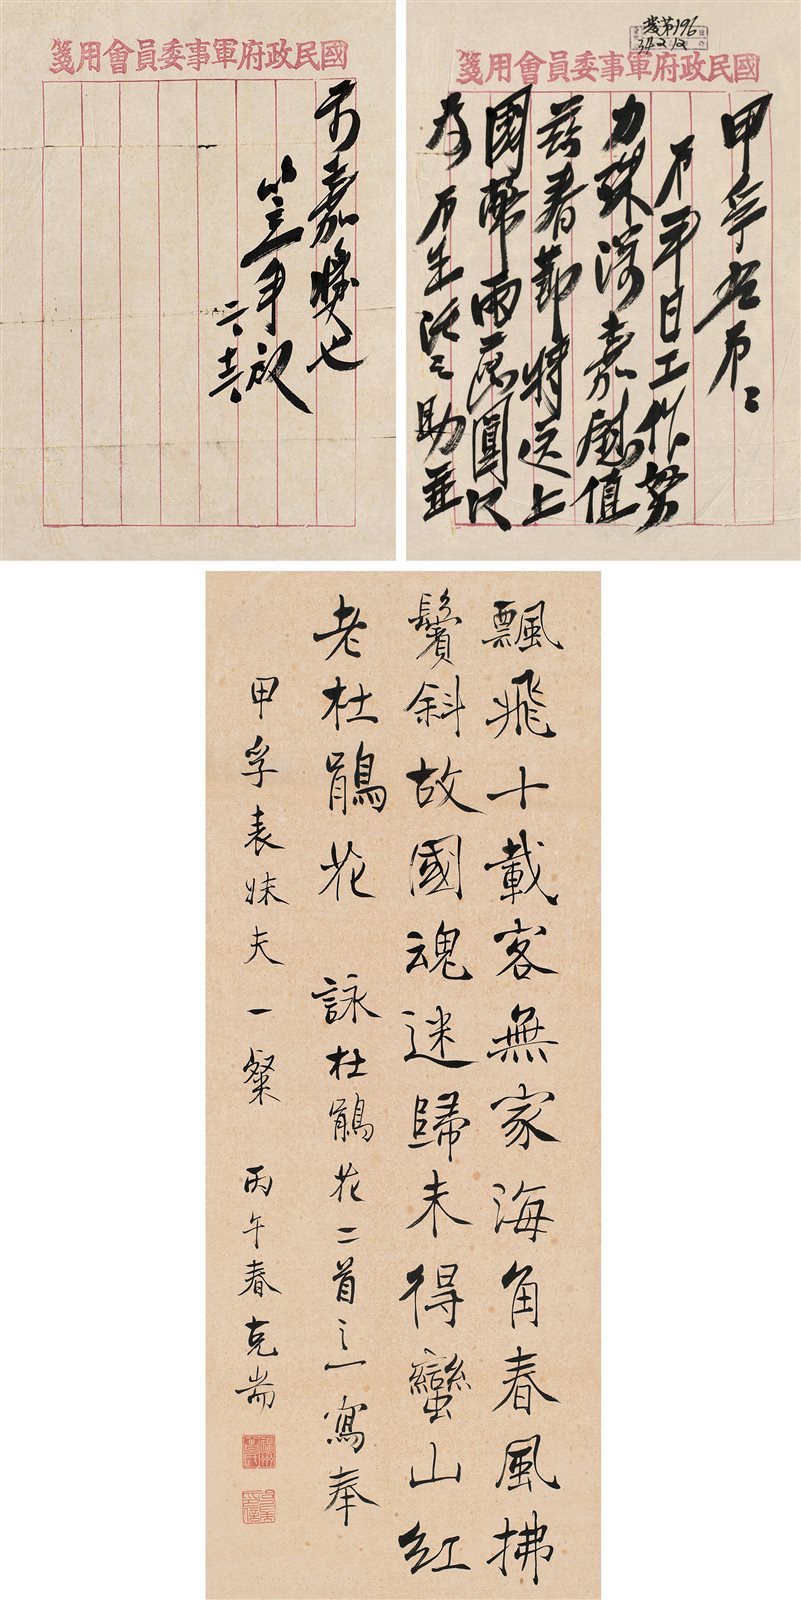 發第196
34.2.12
國民政府軍事委員會用箋
甲孚老弟：
弟平日工作努
力殊深嘉慰值
茲春節特送上
國幣兩萬圓以
為弟生活之助並
國民政府軍事委員會用箋
示嘉獎也
笠手啟
飄飛十載客無家海角春風拂
鬢斜故國魂迷歸未得蠻山紅
老杜鵑花 詠杜鵑花二首之一寫奉
甲孚表妹夫一粲 丙午春克耑